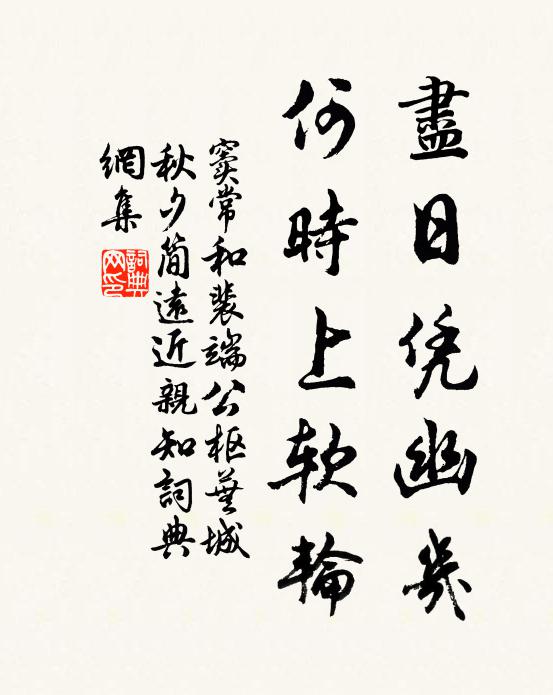 盡日凭幽幾
何時上软輪
竇常和裴端公枢蕪城
秋夕简遠近親知詞典
網集
詞典
网印